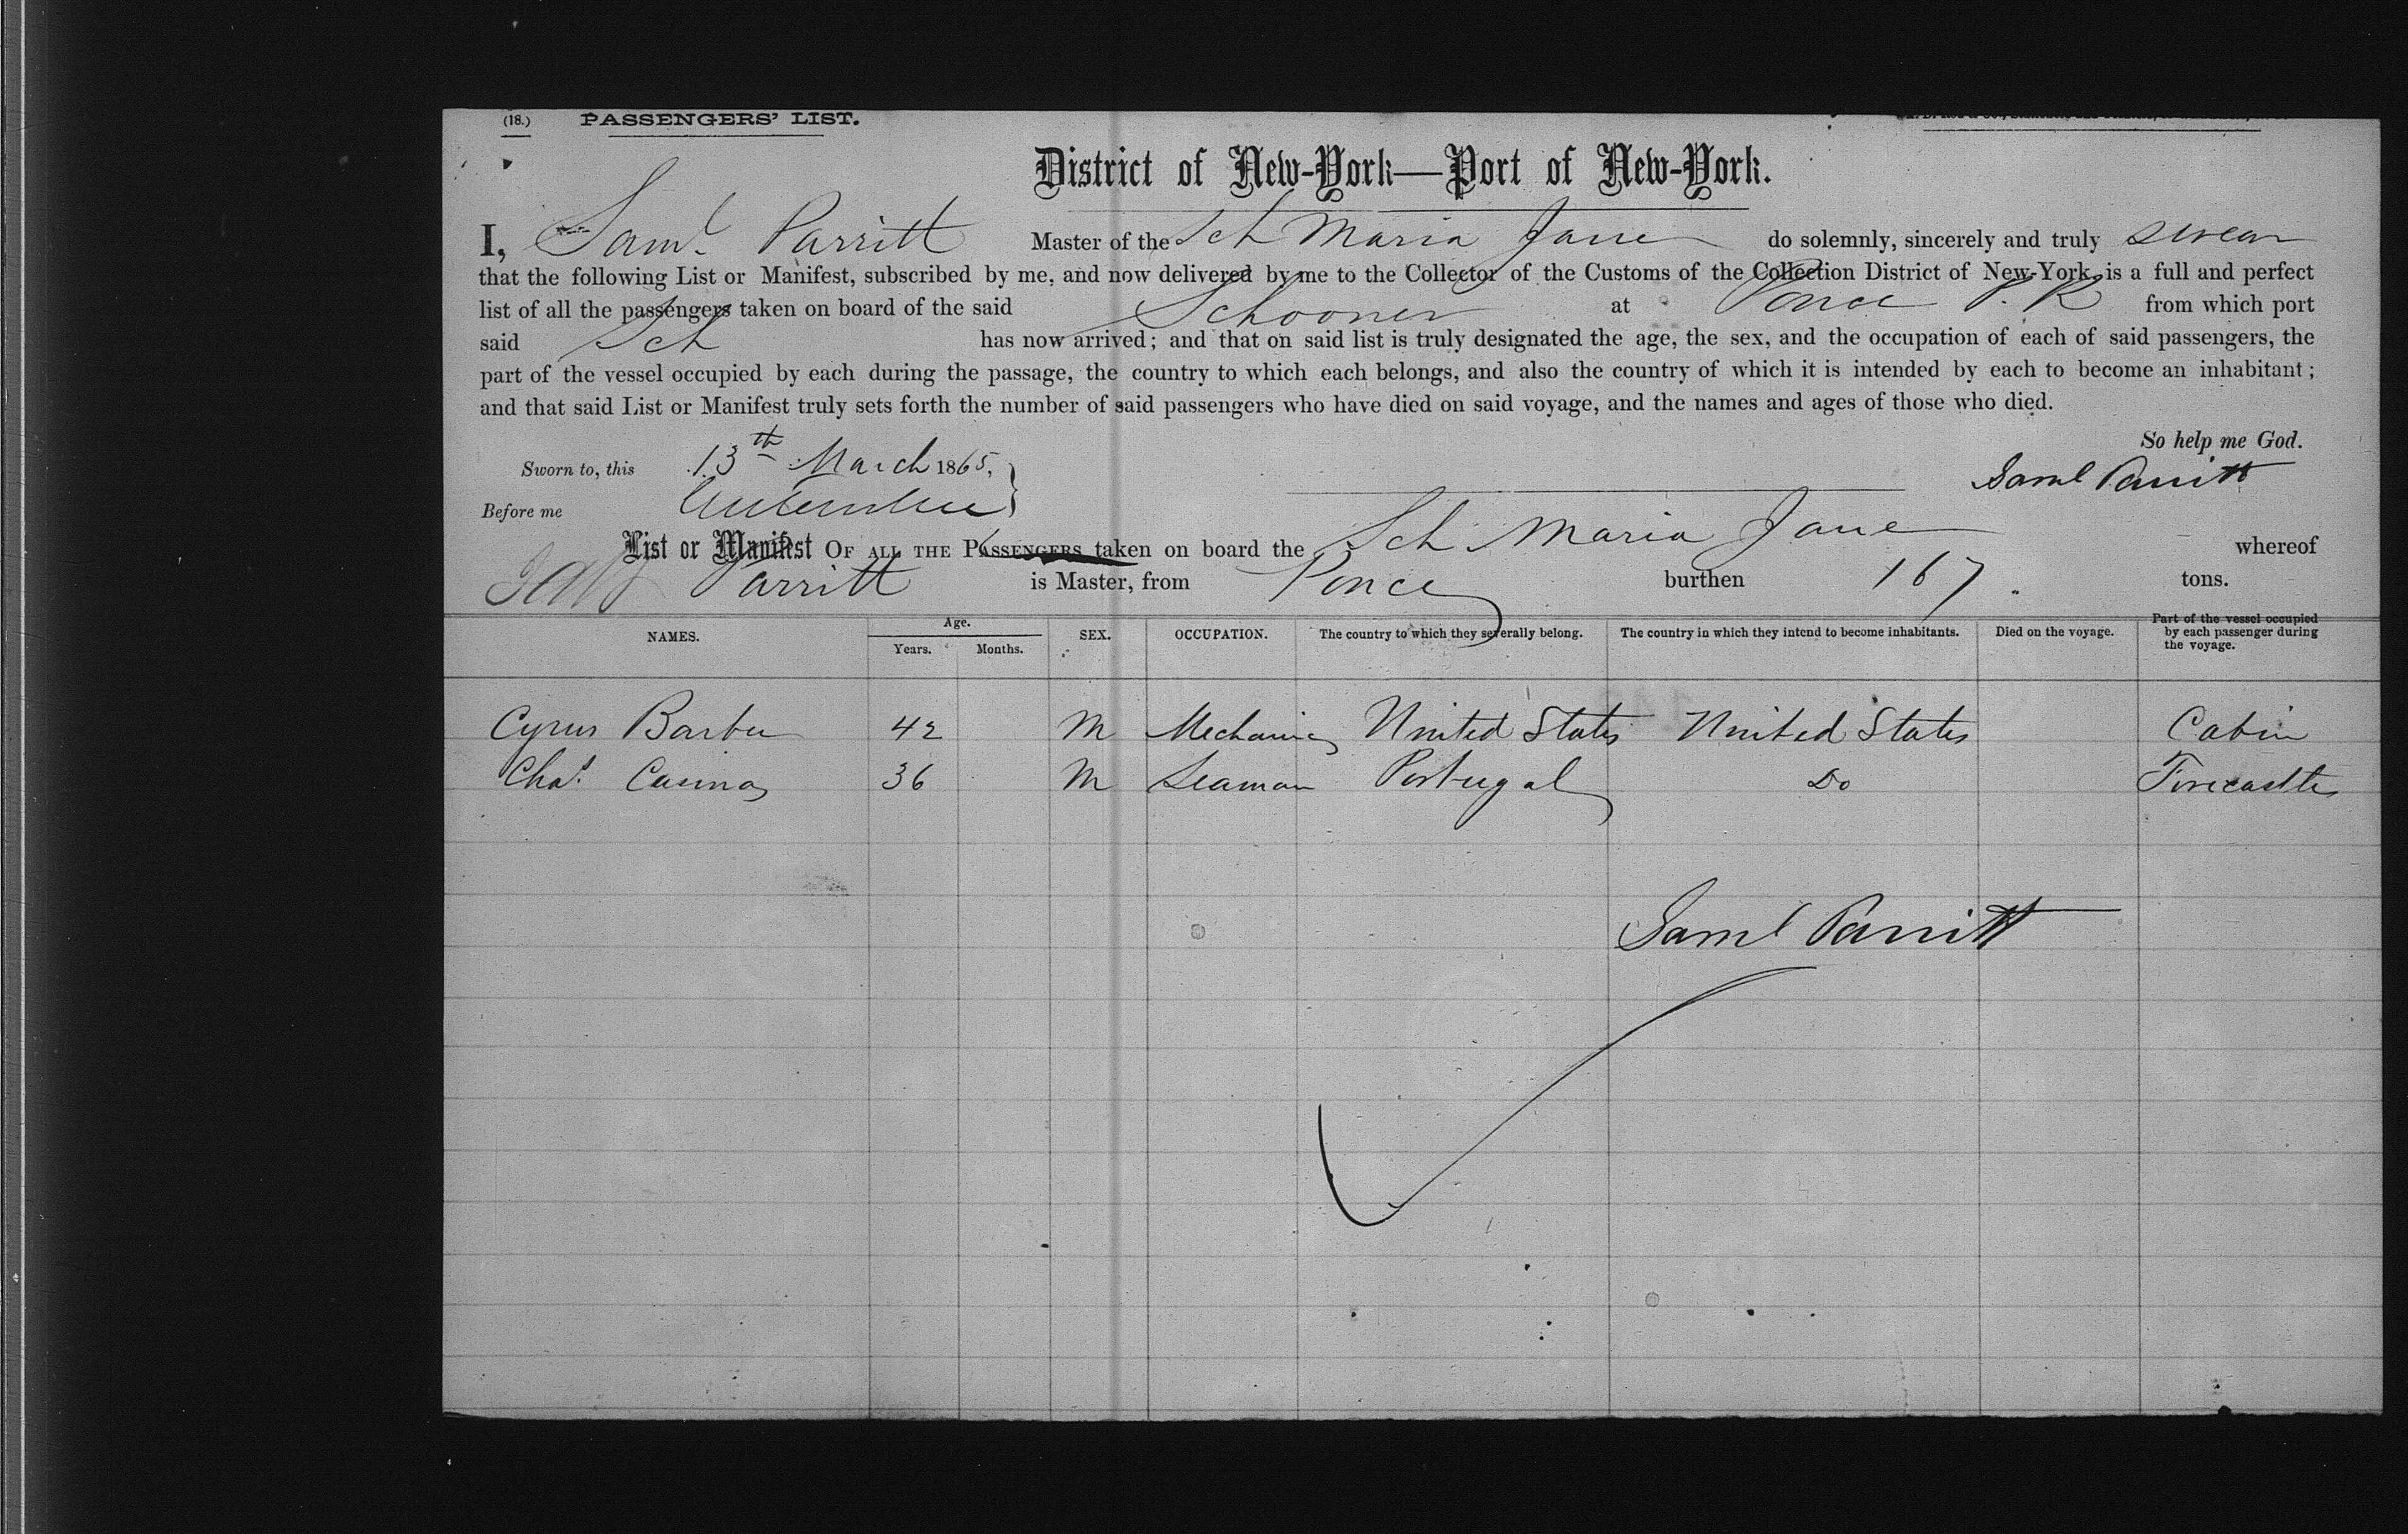 (18.) PASSENGERS' LIST.
District of New-York—Port of New-York.
I, Saml Parritt Master of the Sch Maria Jane do solemnly, sincerely and truly swear
that the following List or Manifest, subscribed by me, and now delivered by me to the Collector of the Customs of the Collection District of New-York, is a full and perfect
list of all the passengers taken on board of the said Schooner at Ponce P. R from which port
said Sch has now arrived; and that on said list is truly designated the age, the sex, and the occupation of each of said passengers, the
part of the vessel occupied by each during the passage, the country to which each belongs, and also the country of which it is intended by each to become an inhabitant;
and that said List or Manifest truly sets forth the number of said passengers who have died on said voyage, and the names and ages of those who died.
So help me God.
Sworn to, this 13th March 1865,
Saml Parritt
Before me
List or Manifest OF ALL THE PASSENGERS taken on board the Sch Maria Jane whereof
Parritt is Master, from Ponce burthen 167 tons.
NAMES. Age. Years. Months. SEX. OCCUPATION. The country to which they severally belong. The country in which they intend to become inhabitants. Died on the voyage. Part of the vessel occupied by each passenger during the voyage.
Cyrus Barber 42 M Mechanic United States United States Cabin
Chas. 36 M Seaman Portugal Do Forecastle
Saml Parritt